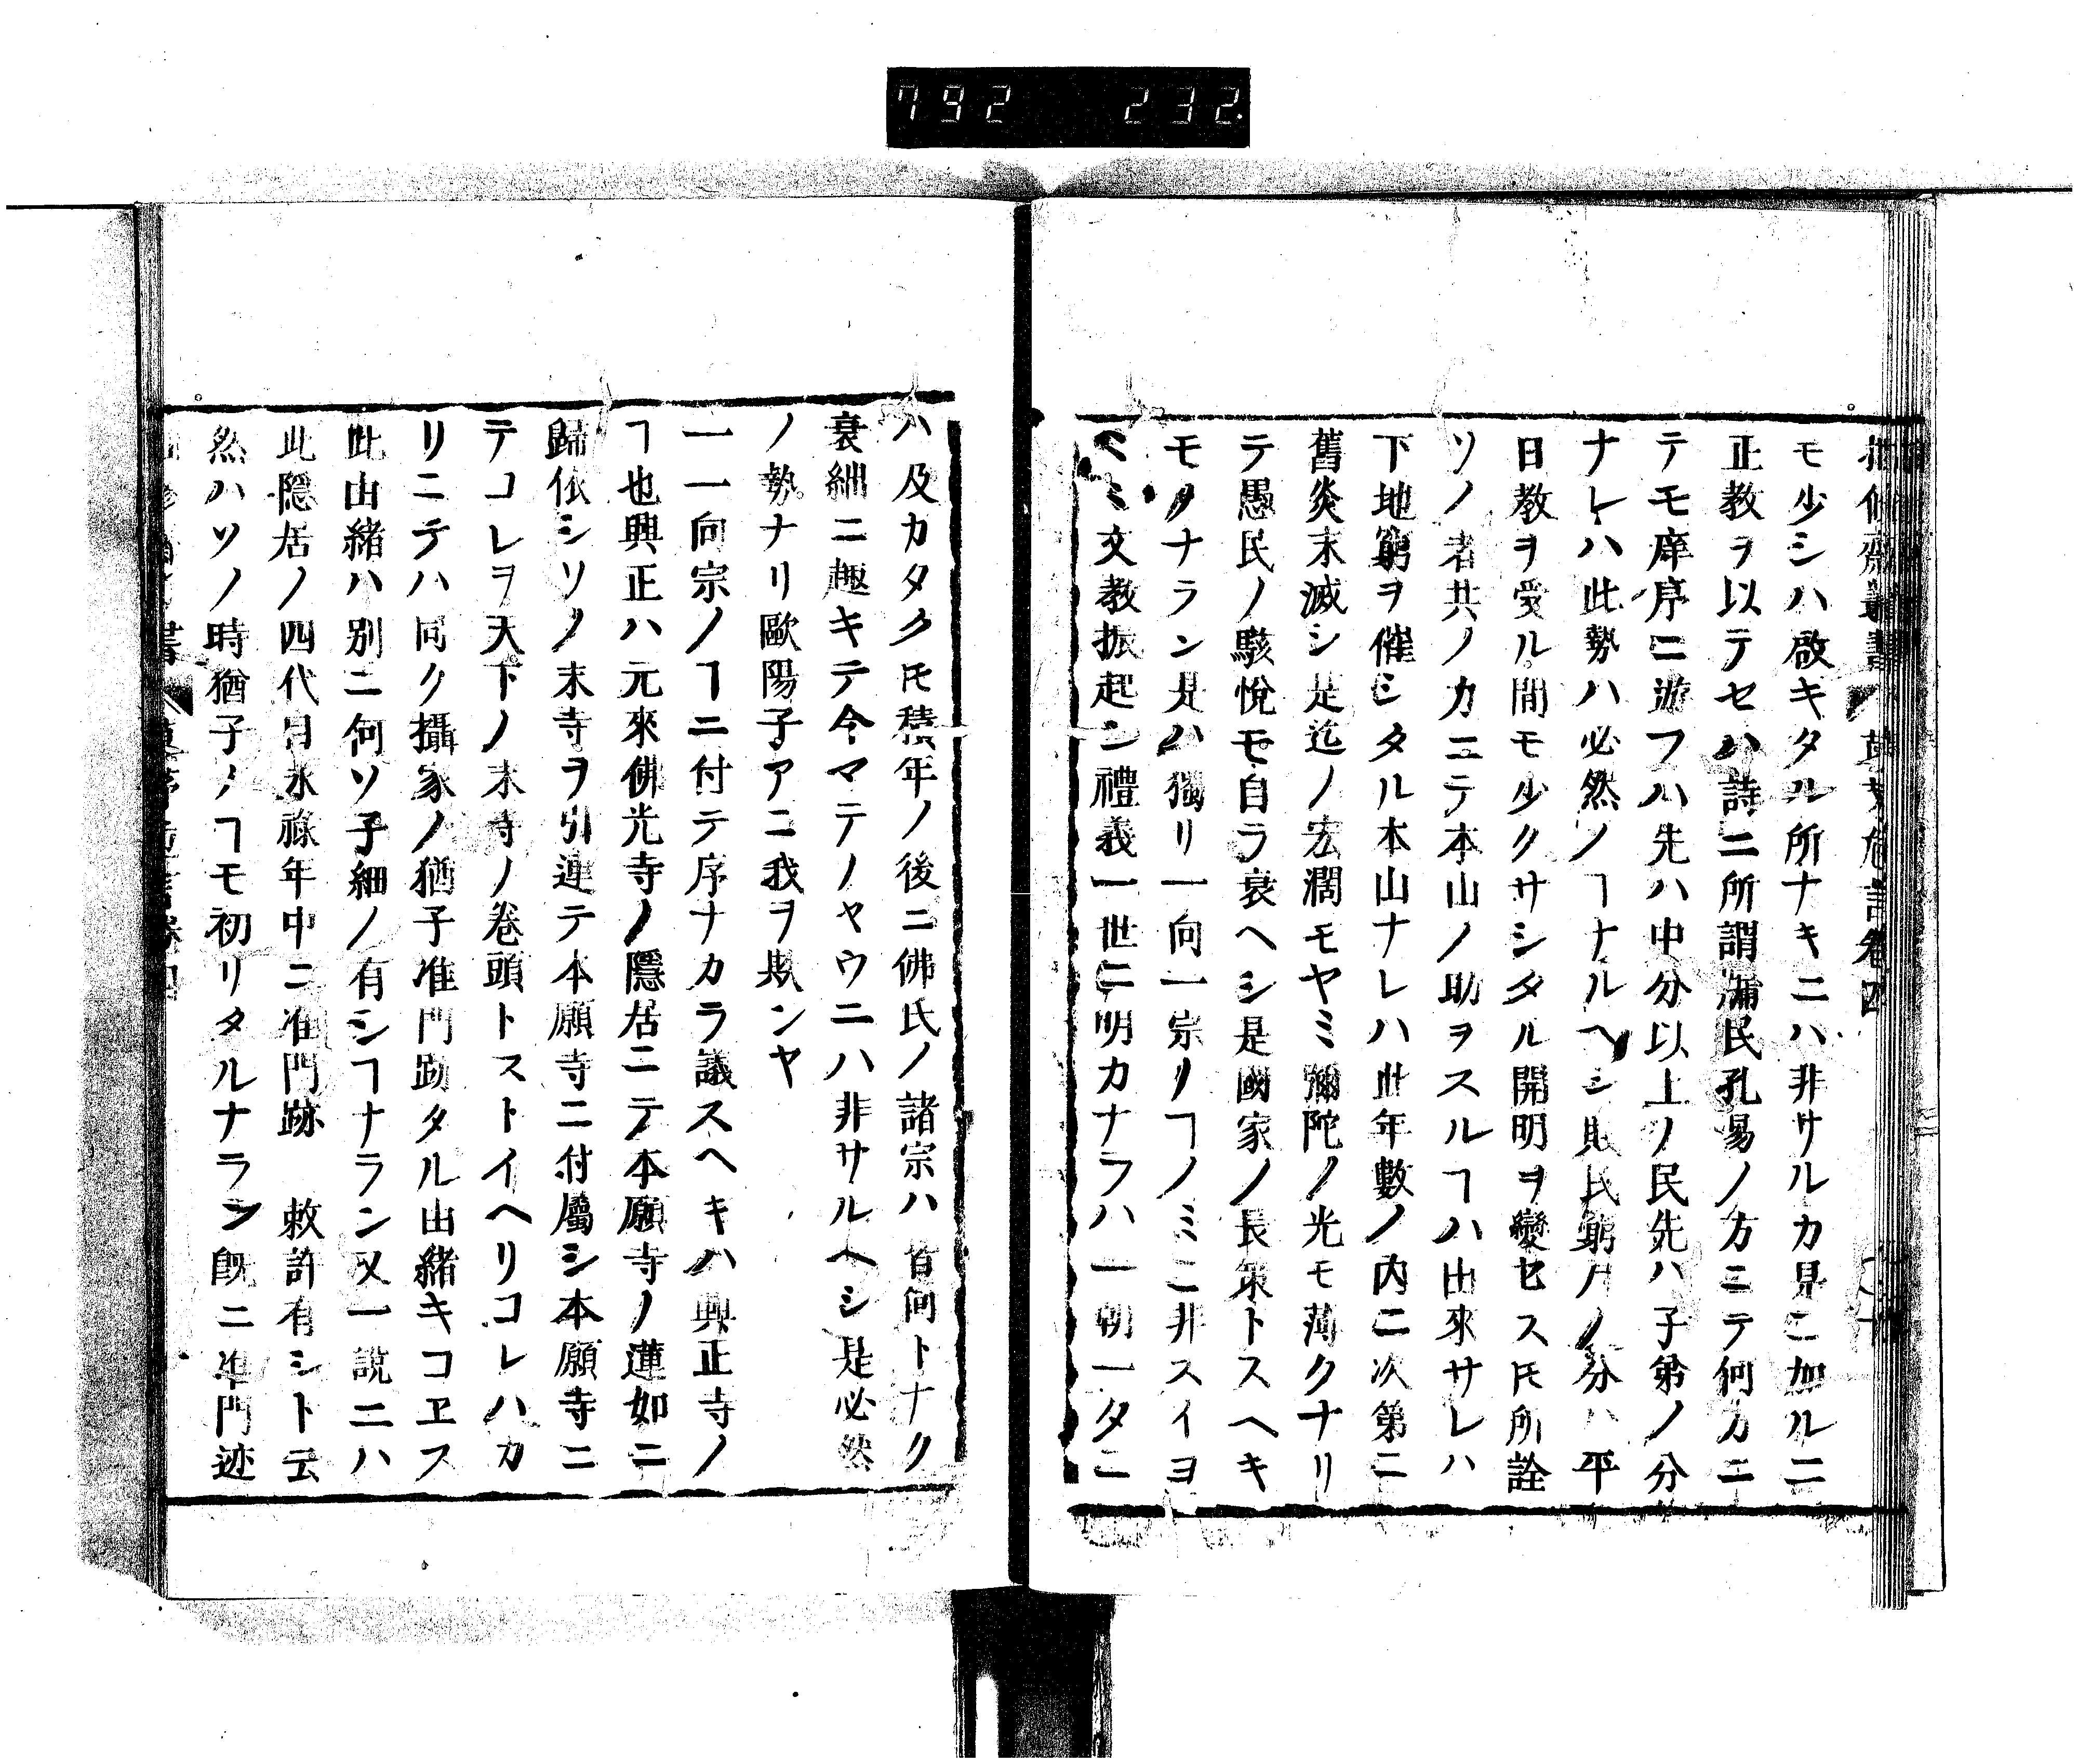 792 232.
モ少シハ啟キタル所ナキニハ非サルカ見ニ加ルニ
正教ヲ以テセハ詩ニ所謂漏民孔易ノ方ニテ何カニ
テモ庠序ニ遊フハ先ハ中分以上ノ民先ハ子弟ノ分
ナレハ此勢ハ必然ノヿナルヘシ民窮戸ノ分ハ平
日教ヲ受ル間モ少クサシタル開明ヲ變セスㇳモ所詮
ソノ者共ノカニテ本山ノ助ヲスルヿハ出來サレハ
下地窮ヲ催シタル本山ナレハ世年數ノ内ニ次第ニ
舊炎末滅シ是迄ノ宏濶モヤミ彌陀ノ光モ薄クナリ
テ愚民ノ駭悅モ自ラ衰ヘシ是國家ノ長策トスヘキ
モタナラン是ハ獨リ一向一宗リヿノミニ非スイヨ
〱文教振起シ禮義一世ニ明カナラハ一朝一タニ
ハ及カタクㇳモ積年ノ後ニ佛氏ノ諸宗ハ首向トナク
衰細ニ趣キテ今マテノヤウニハ非サルヘシ是必然
ノ勢ナリ歐陽子アニ我ヲ欺ンヤ
一一向宗ノヿニ付テ序ナカラ議スヘキハ興正寺ノ
ヿ也興正ハ元來佛光寺ノ隱居ニテ本願寺ノ蓮如ニ
歸依シソノ末寺ヲ引連テ本願寺ニ付屬シ本願寺ニ
テコレヲ天下ノ末寺ノ卷頭トストイヘリコレハカ
リニテハ同ク攝家ノ猶子准門跡タル由緒キコヱス
此由緒ハ別ニ何ソ子細ノ有シヿナラン又一說ニハ
此隱居ノ四代目永祿年中ニ准門跡 敕許有シト云
然ハソノ時猶子ノヿモ初リタルナラン既ニ準門迹